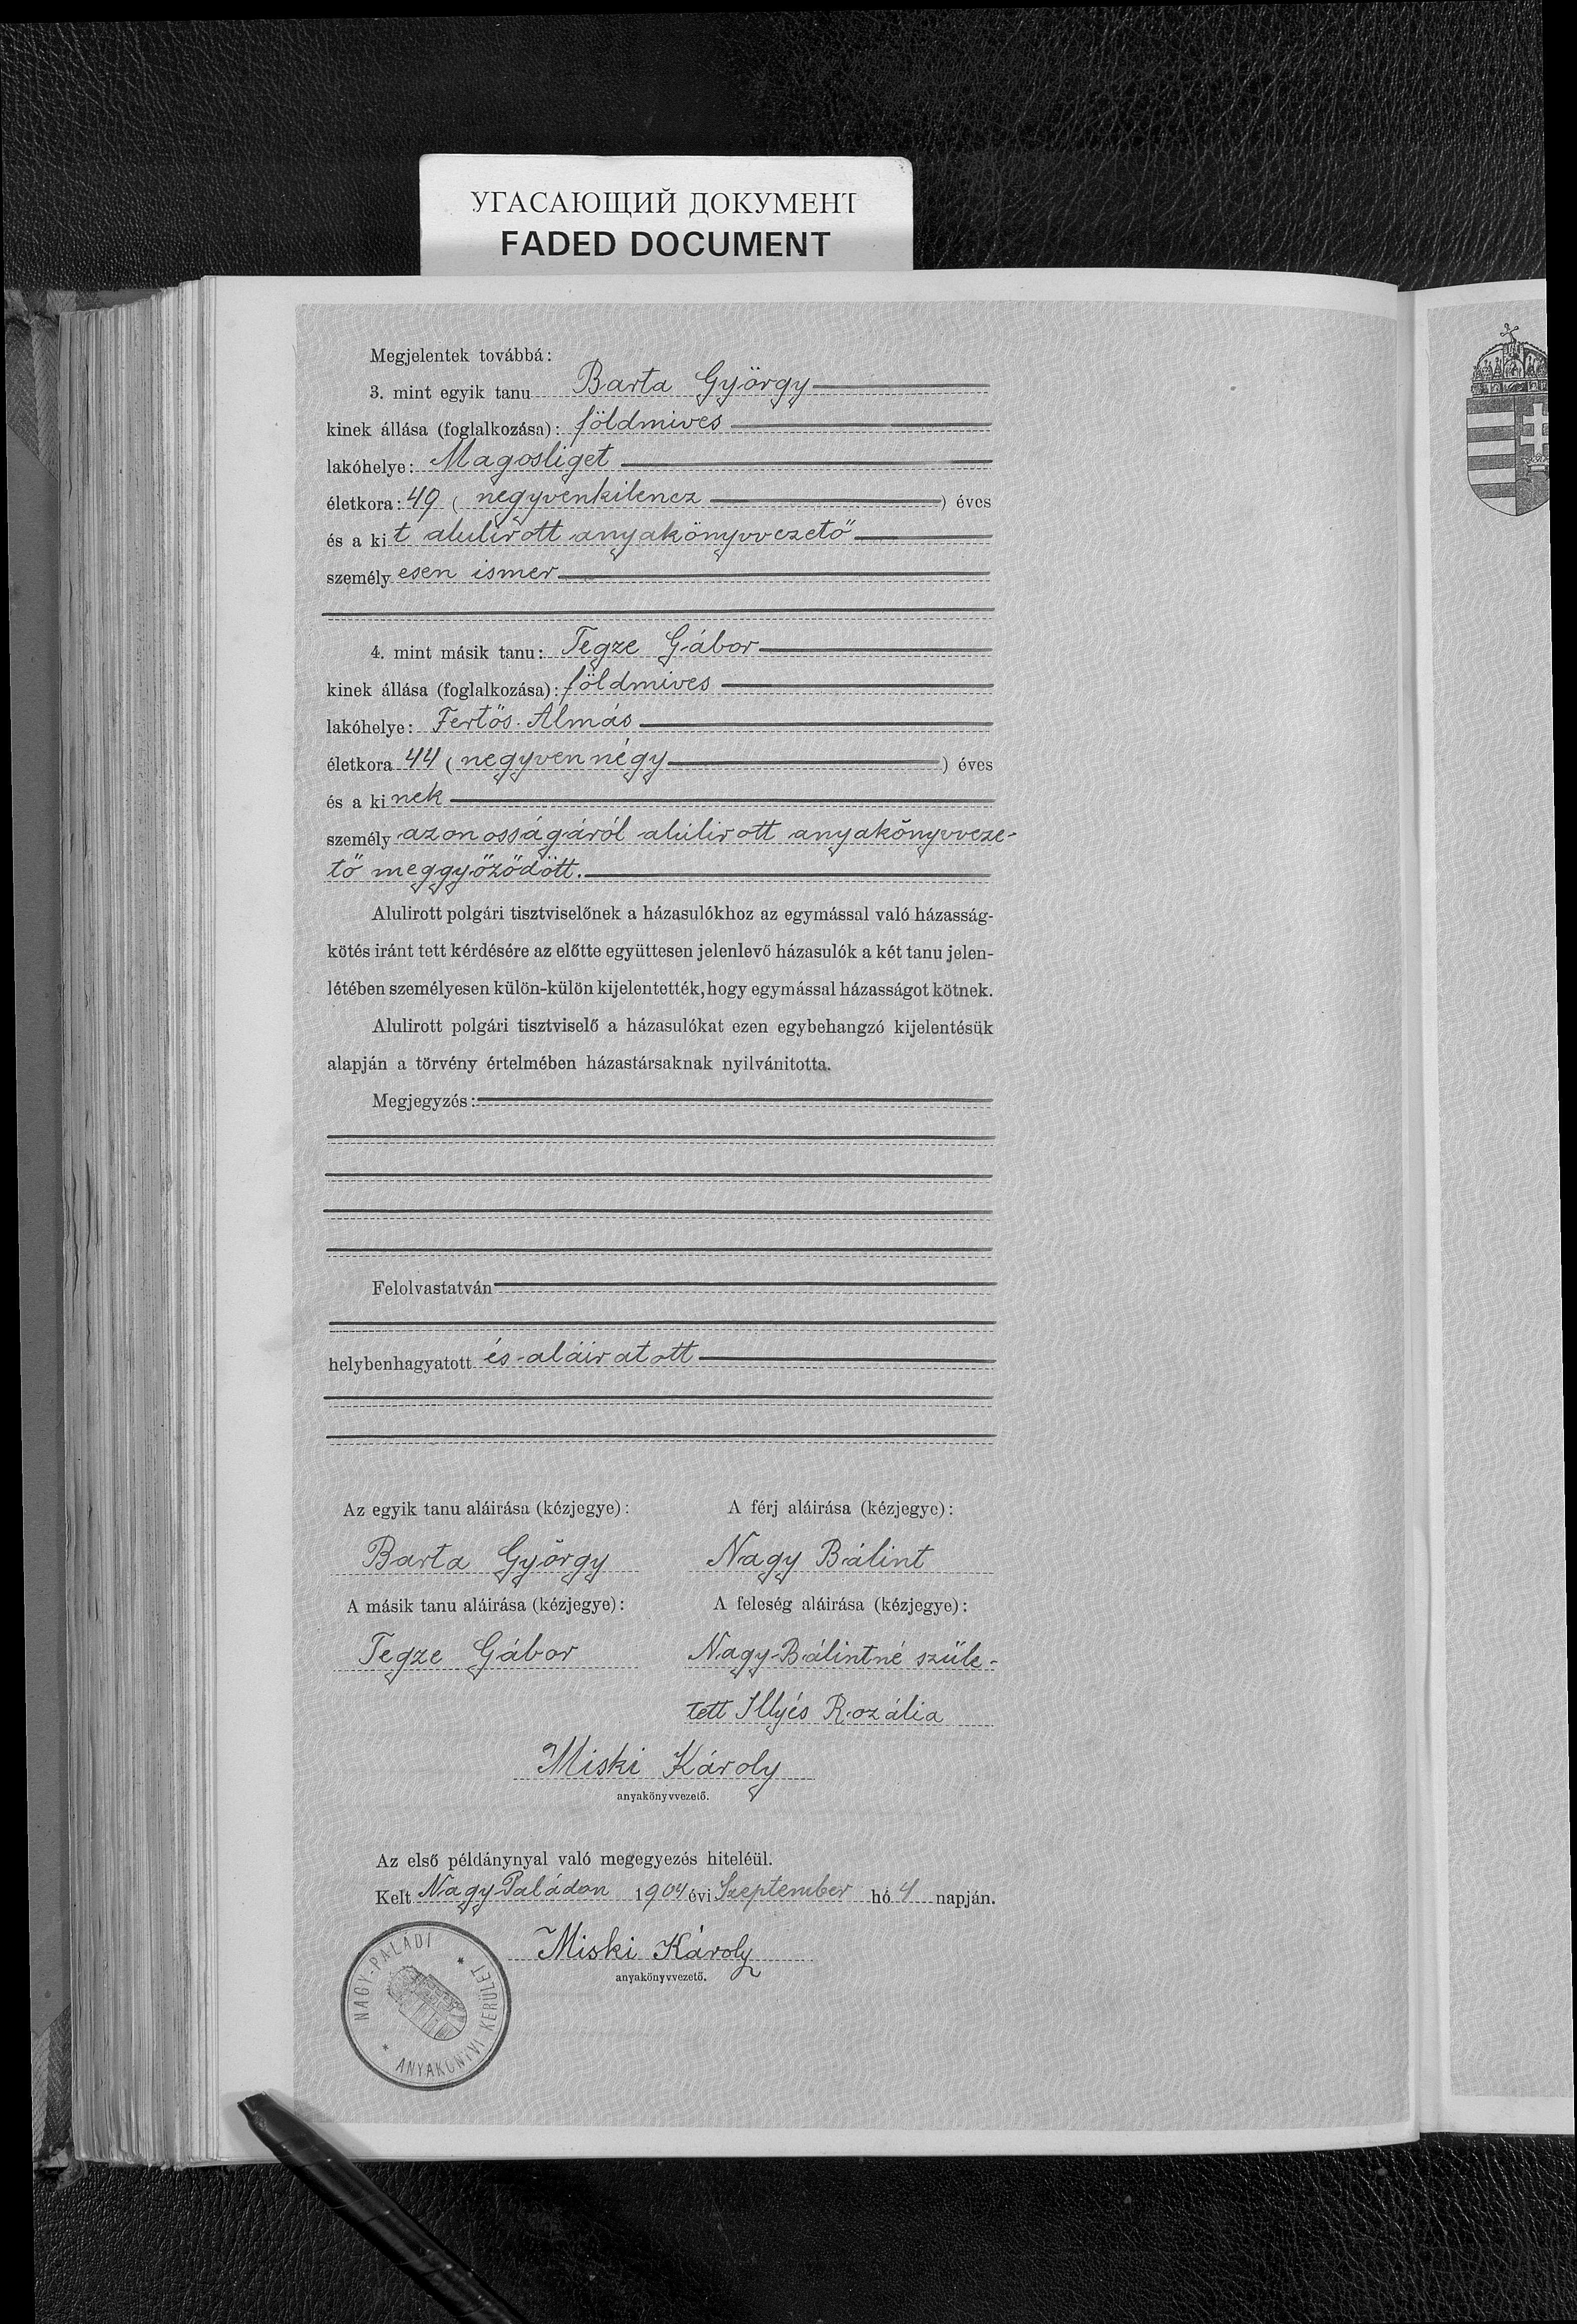 УГАСАЮЩИЙ ДОКУМЕНТ
FADED DOCUMENT
Megjelentek továbbá:
3. mint egyik tanu Barta György
kinek állása (foglalkozása): földmives
lakóhelye: Magosliget
életkora: 49 (negyvenkilencz) éves
és a kit alulirott anyakönyvvezető
személyesen ismer
4. mint másik tanu: Tegze Gábor
kinek állása (foglalkozása): földmives
lakóhelye: Fertős-Almás
életkora 44 (negyvennégy) éves
és a kinek
személy azonosságáról alúlirott anyakönyvveze-
tő meggyőződött.
Alulirott polgári tisztviselőnek a házasulókhoz az egymással való házasság-
kötés iránt tett kérdésére az előtte együttesen jelenlevő házasulók a két tanu jelen-
létében személyesen külön-külön kijelentették, hogy egymással házasságot kötnek.
Alulirott polgári tisztviselő a házasulókat ezen egybehangzó kijelentésük
alapján a törvény értelmében házastársaknak nyilvánitotta.
Megjegyzés:
Felolvastatván
helybenhagyatott és aláiratott
Az egyik tanu aláirása (kézjegye): A férj aláirása (kézjegye):
Barta György Nagy Bálint
A másik tanu aláirása (kézjegye): A feleség aláirása (kézjegye):
Tegze Gábor Nagy Bálintné szüle-
tett Illyés Rozália
Miski Károly
anyakönyvvezető.
Az első példánynyal való megegyezés hiteléül.
Kelt Nagy-Paládon 1904 évi Szeptember hó 4 napján.
Miski Károly
anyakönyvvezető.
NAGY-PALÁDI * ANYAKÖNYVI KERÜLET *